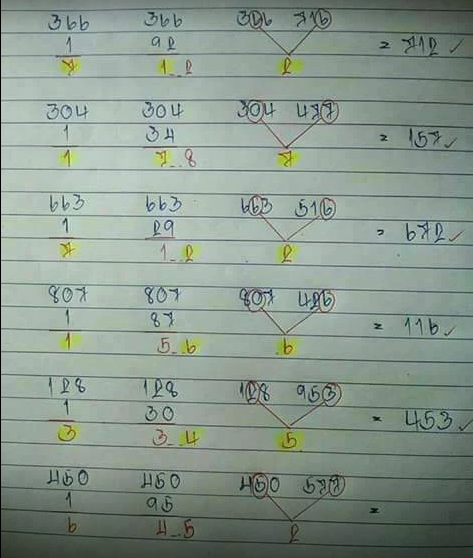 366 366 366 716
1 92 = 712 ✓
7 1..2 2
304 304 304 477
1 34 = 157 ✓
1 7..8 7
663 663 663 516
1 29 = 672 ✓
7 1..2 2
807 807 807 426
1 87 = 116 ✓
1 5..6 6
128 128 128 953
1 30 = 453 ✓
3 3..4 5
450 450 450 577
1 95 =
6 4..5 2